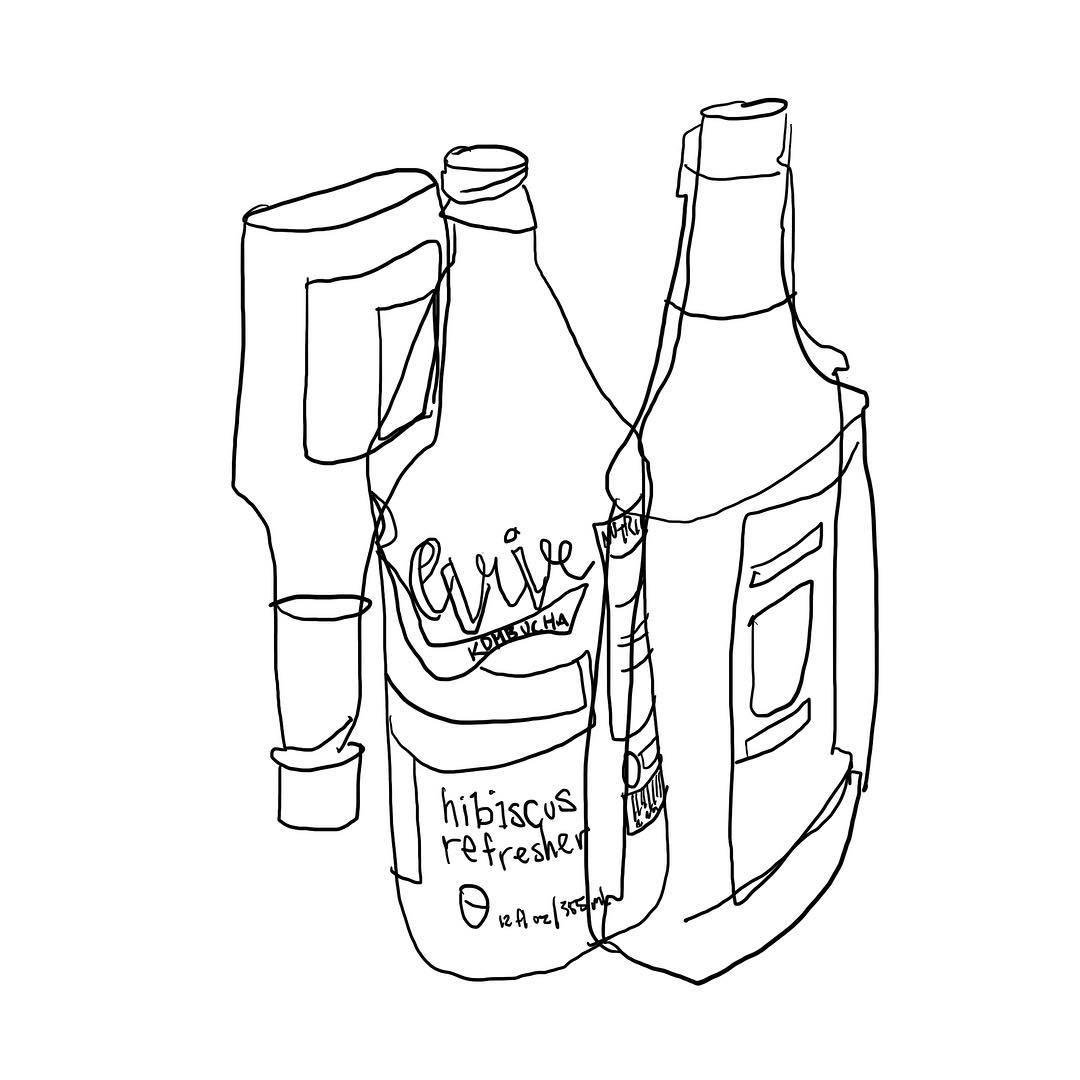 evive
KOMBUCHA
hibiscus
refresher
12 fl oz/355 mL
NUTRI